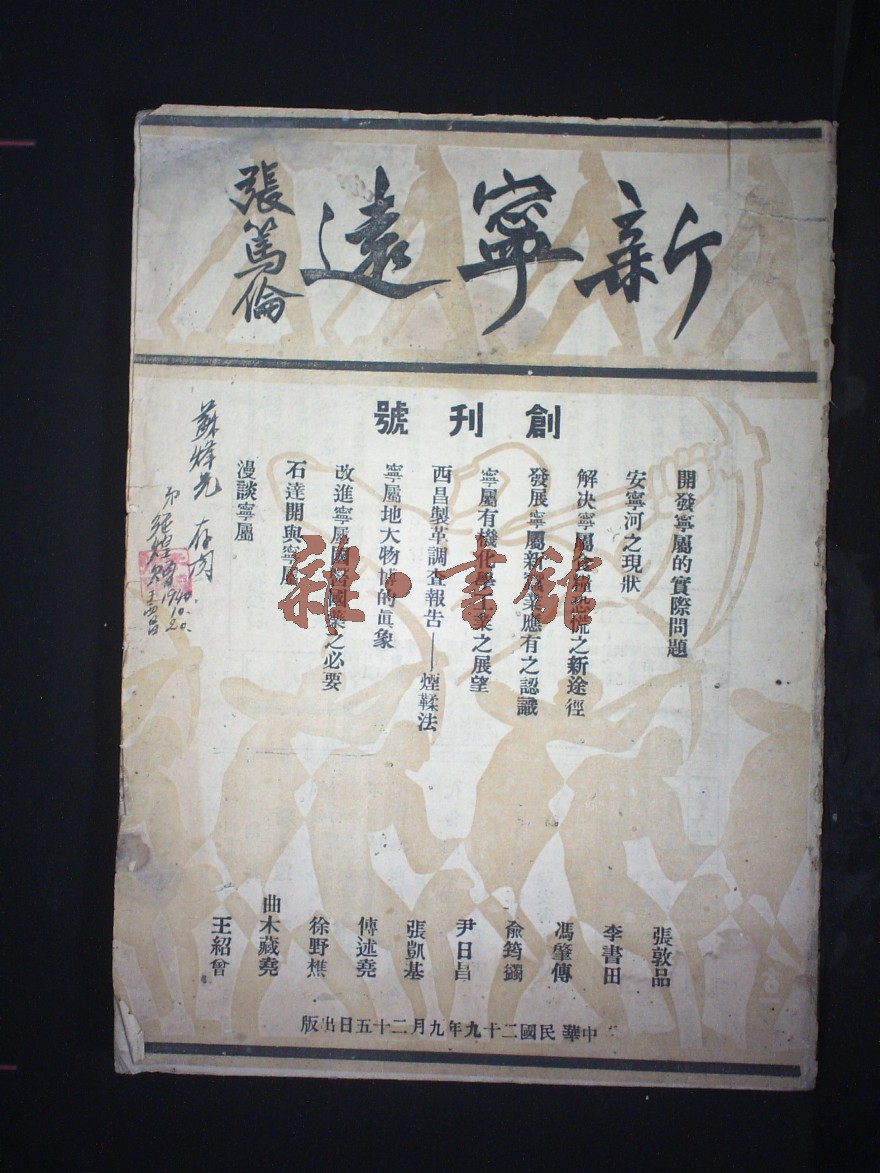 新寧遠
張篤倫
創刊號
開發寧屬的實際問題
安寧河之現狀
解決寧屬食糧恐慌之新途徑
發展寧屬新窯業應有之認識
寧屬有機化學工業之展望
西昌製革調查報告——煙鞣法
寧屬地大物博的眞象
改進寧屬國營國藥之必要
石達開與寧屬
漫談寧屬
張敦品
李書田
馮肇傳
兪筠鐲
尹日昌
張凱基
傅述堯
徐野樵
曲木藏堯
王紹曾
中華民國二十九年九月二十五日出版
蘇烽先 存閱
1940.10.20.
雜·書館